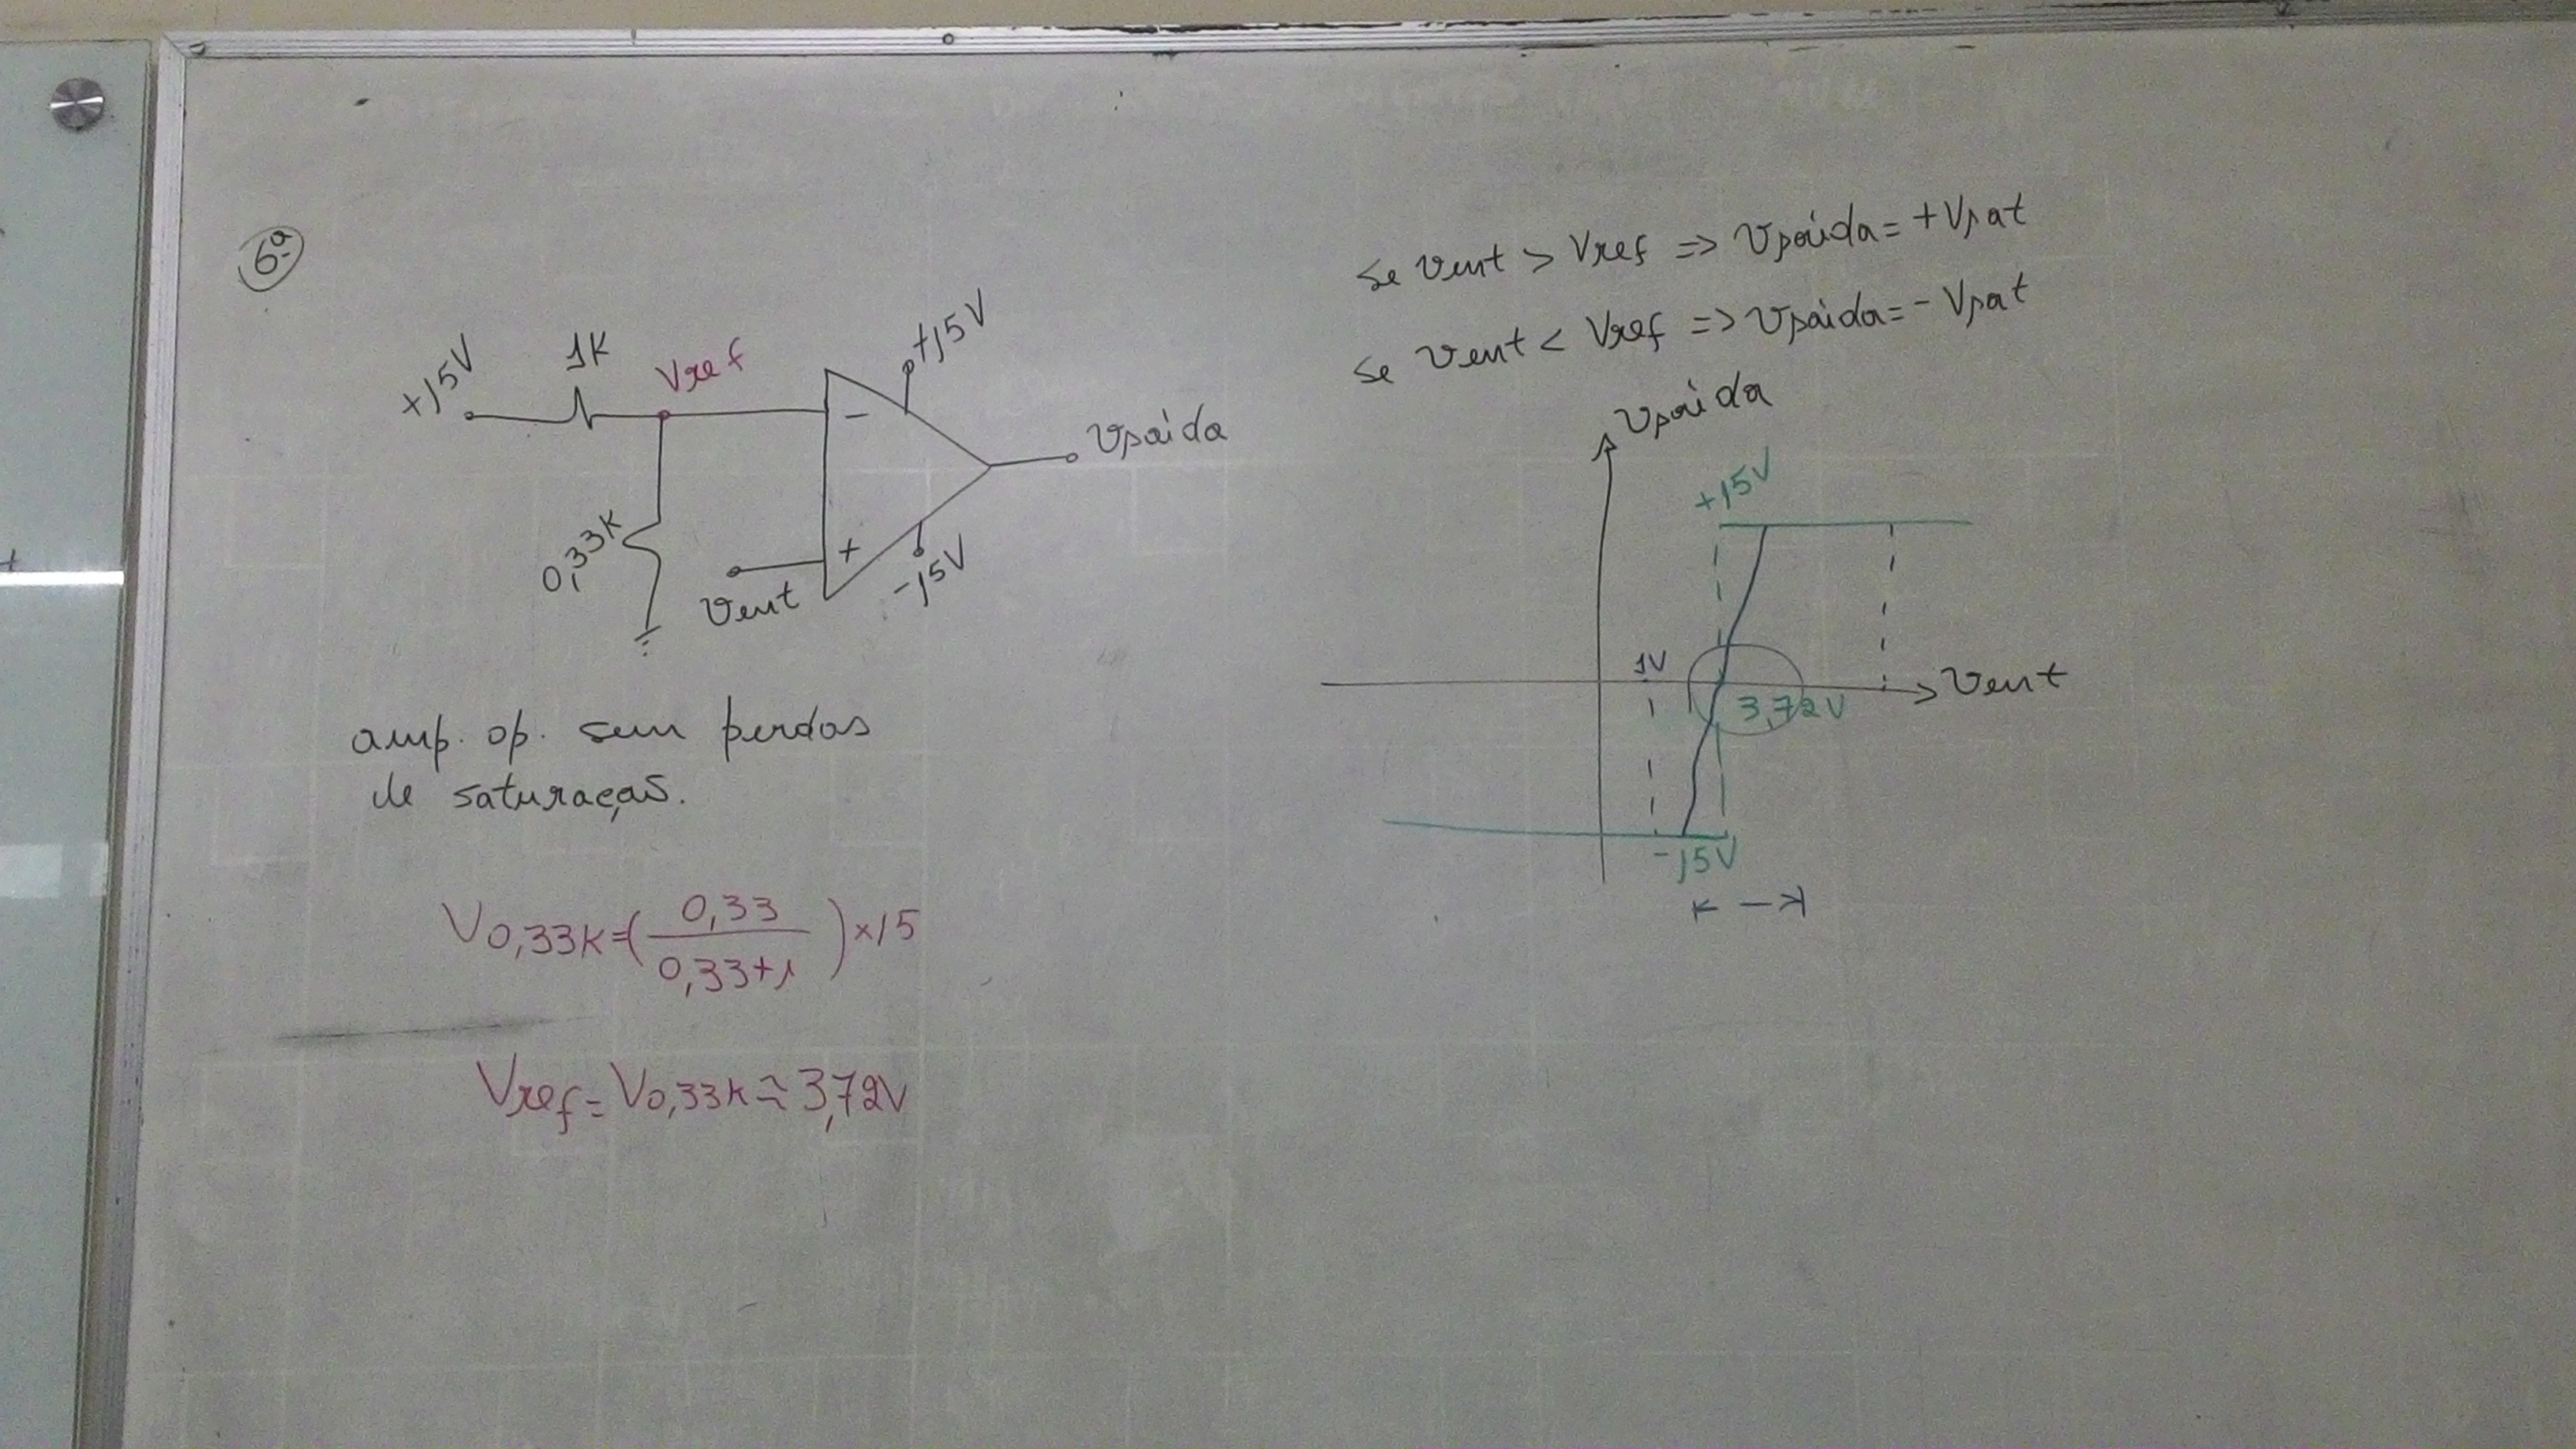 6ª
+15V
1K
Vref
+15V
-
Vsaída
0,33K
+
Vent
-15V
amp. op. sem perdas
de saturação.
V0,33K=(0,33/0,33+1)×15
Vref=V0,33K≈3,72V
Se Vent > Vref => Vsaída=+Vsat
Se Vent < Vref => Vsaída=-Vsat
Vsaída
+15V
1V
Vent
3,72V
-15V